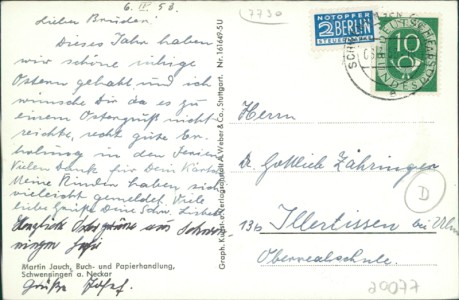 6. IV. 53.
7730
Lieber Bruder!
Dieses Jahr haben
wir schöne ruhige
Ostern gehabt und ich
wünsche Dir da es zu
einem Ostergruß nicht
reichte, recht gute Er-
holung in den Ferien
Vielen Dank für Dein Karte
Meine Kinden haben sich
vielleicht gemeldet. Viele
liebe Grüße Deine Schw.
Herzliche Ostergrüße aus Schwen-
ningen
Martin Jauch, Buch- und Papierhandlung,
Schwenningen a. Neckar
Grüße Josef.
Graph. Kunst- u. Verlagsanstalt A. Weber & Co., Stuttgart. Nr. 161649-SU
NOTOPFER
2 BERLIN
STEUERMARKE
10
DEUTSCHE BUNDESPOST
Herrn
Dr. Gottlieb Zähringer
13b Illertissen bei Ulm
Oberrealschule.
D
20077